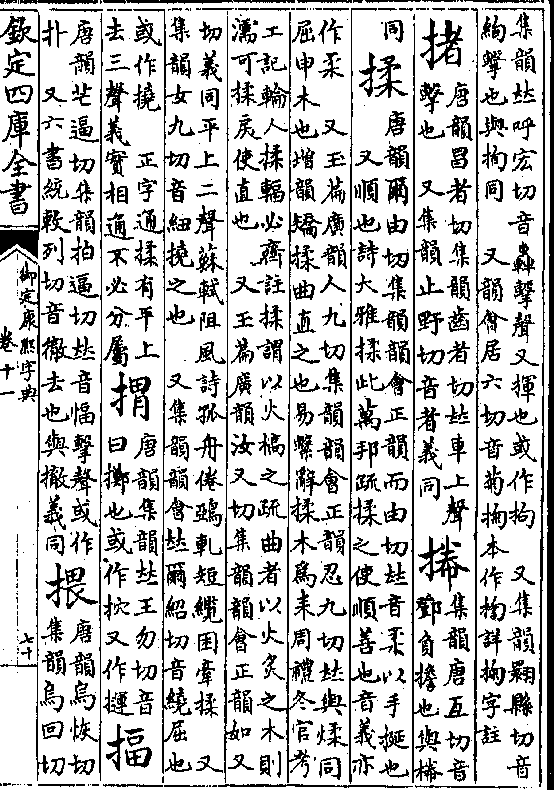 集韻𠀤呼宏切音轟擊聲又揮也或作拘　又集韻翾縣切音
絢擊也與拘同　又韻會居六切音菊掬本作㧬詳掬字註
撦　唐韻昌者切集韻齒者切𠀤車上聲
擊也　又集韻止野切音者義同
集韻唐亙切音
鄧負擔也與
同
揉　唐韻爾由切集韻韻會正韻而由切𠀤音柔以手挻也
又順也詩大雅揉此萬邦疏揉之使順善也音義亦
作柔　又玉篇廣韻人九切集韻韻會正韻忍九切𠀤與煣同
屈申木也增韻矯揉曲直之也易繫辭揉木爲耒周禮冬官考
工記輪人揉輻必齊註揉謂以火槁之疏曲者以火炙之木則
濡可揉戾使直也　又玉篇廣韻汝又切集韻韻會正韻如又
切義同平上二聲蘇軾阻風詩孤舟倦鵶軋短纜困牽揉　又
集韻女九切音紐撓之也　又集韻韻會𠀤爾紹切音繞屈也
或作撓　正字通揉有平上
去三聲義實相通不必分屬
揟　唐韻集韻𠀤王勿切音
曰擲也或作抭又作㩔
揊
唐韻芳逼切集韻拍逼切𠀤音愊擊聲或作
扑　又六書統敕列切音徹去也與撤義同
揋　唐韻烏恢切
集韻烏回切
欽定四庫全書
御定康熙字典
卷十一
七十